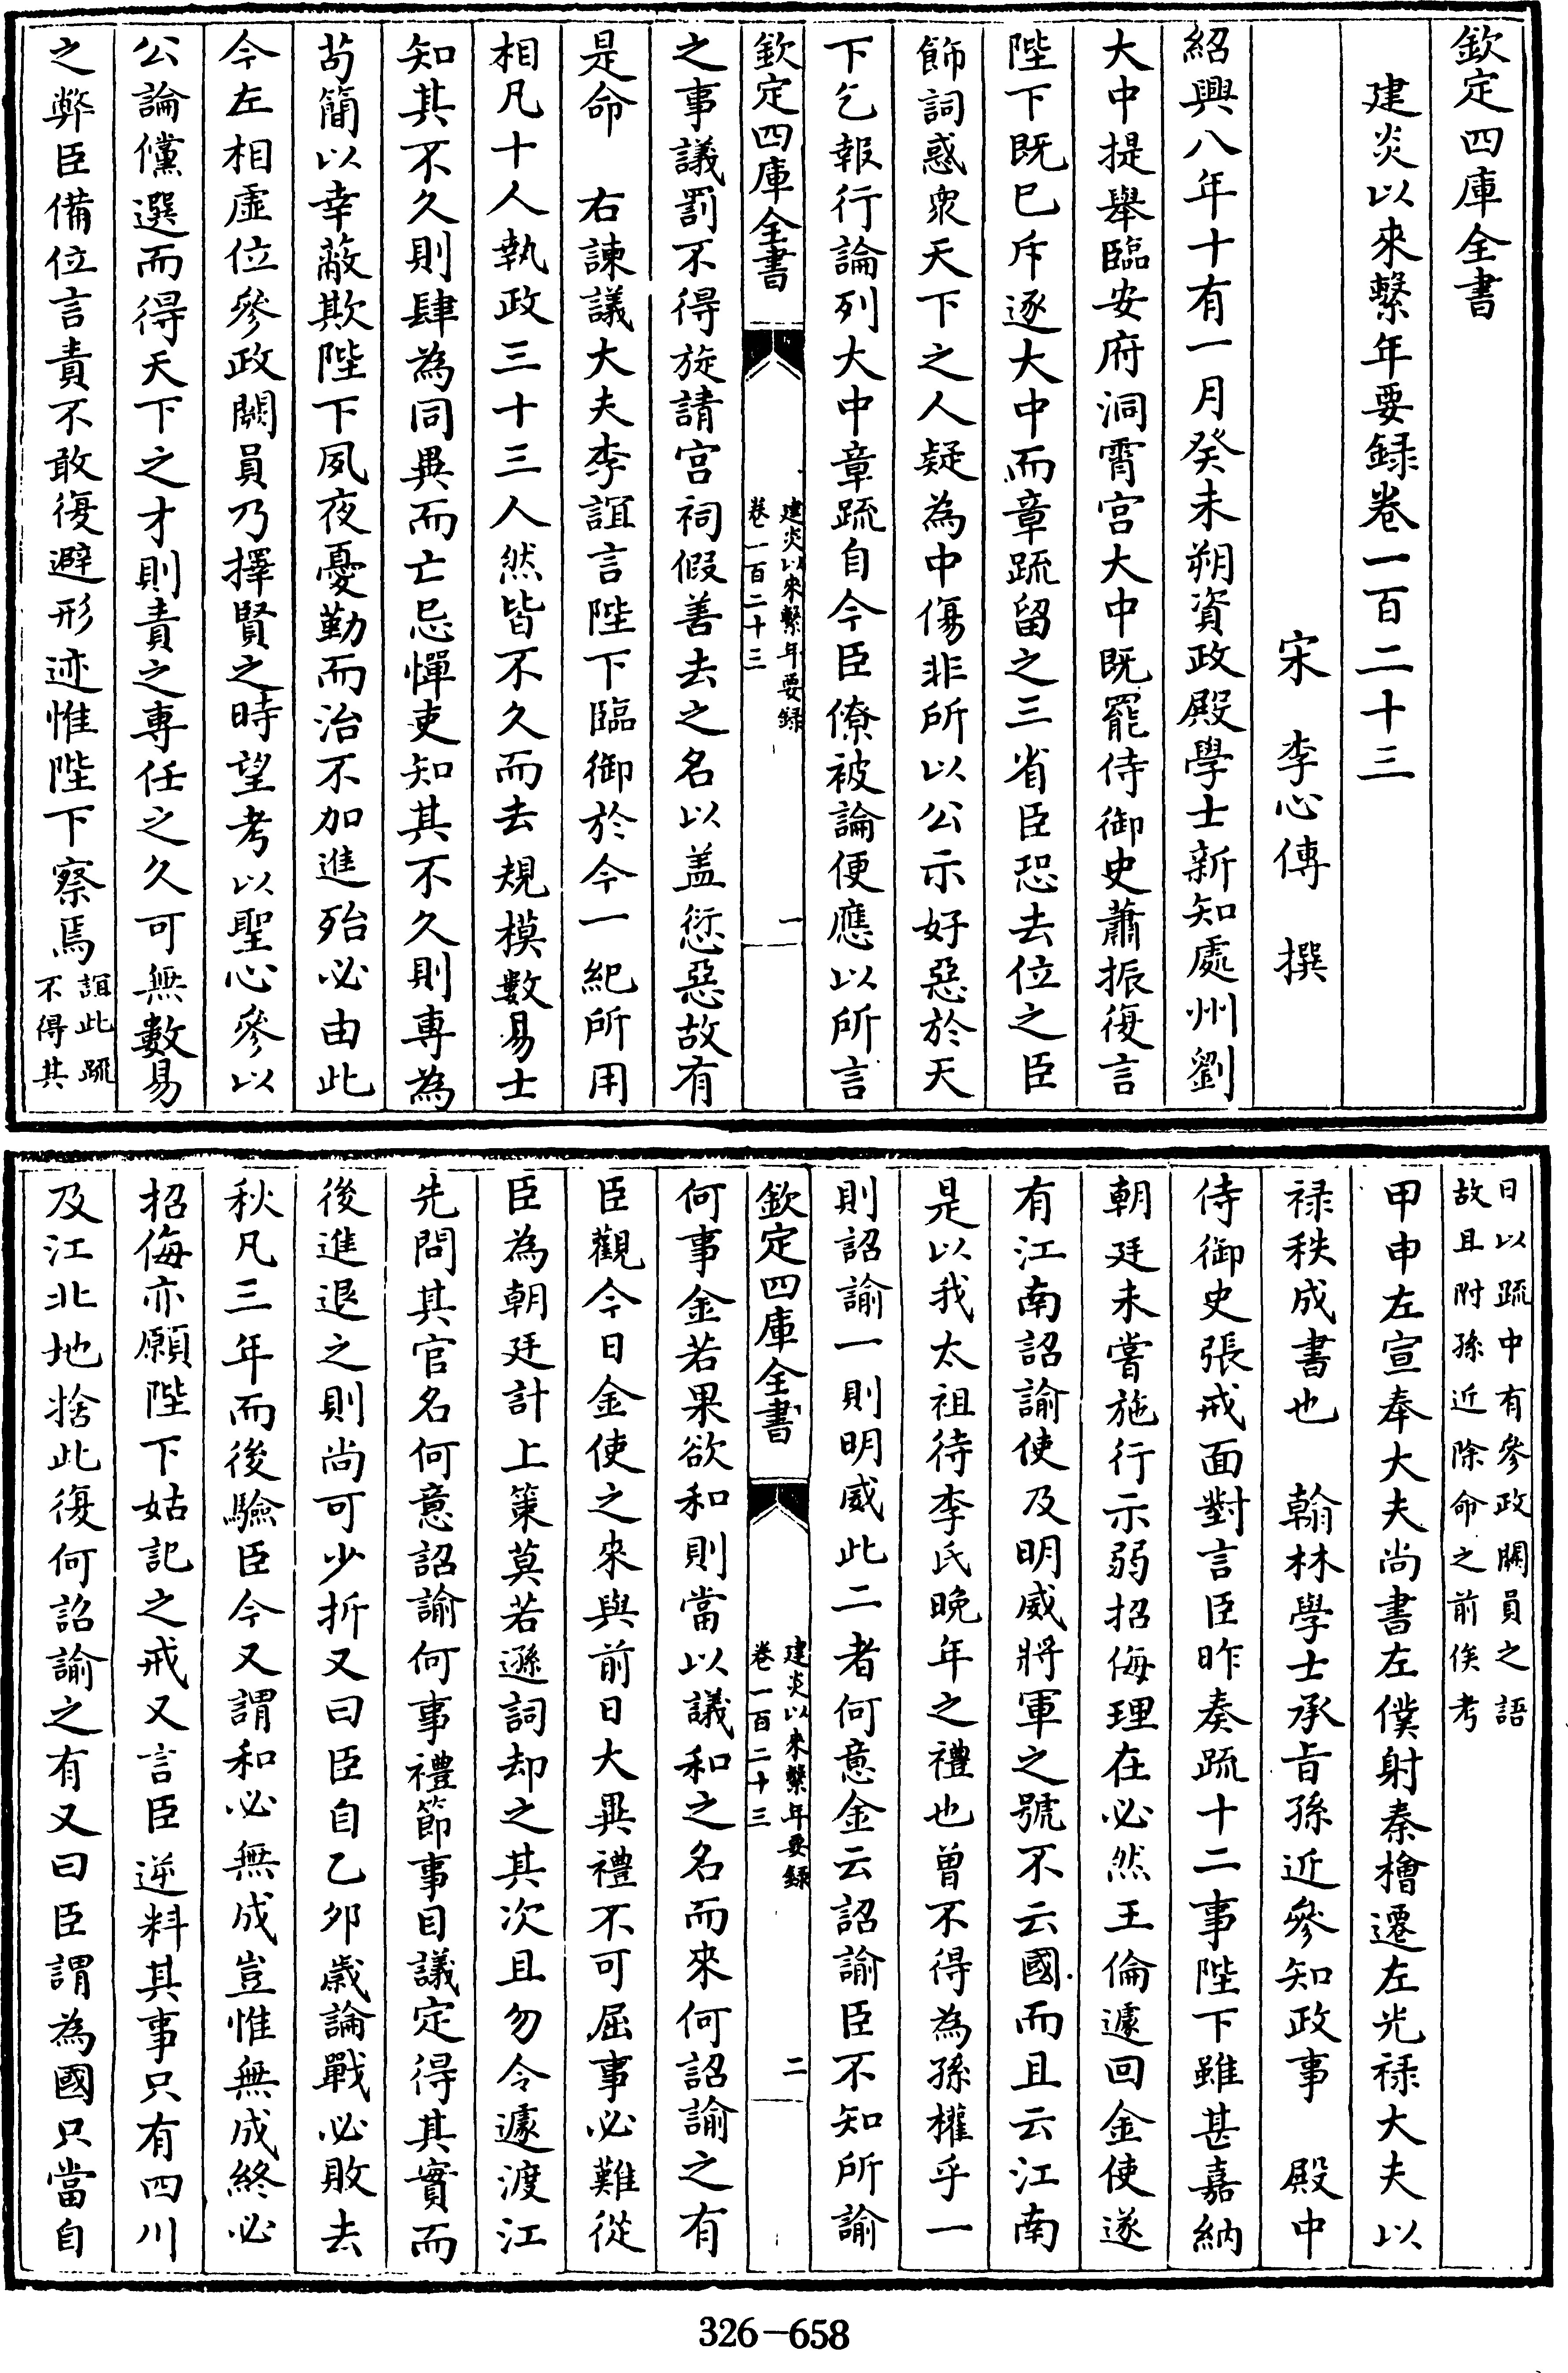 欽定四庫全書
建炎以來繫年要録卷一百二十三
宋 李心傳 撰
紹興八年十有一月癸未朔資政殿學士新知處州劉
大中提舉臨安府洞霄宫大中既罷侍御史蕭振復言
陛下既已斥逐大中而章疏留之三省臣恐去位之臣
飾詞惑衆天下之人疑為中傷非所以公示好惡於天
下乞報行論列大中章疏自今臣僚被論便應以所言
欽定四庫全書
建炎以來繫年要録
卷一百二十三
一
之事議罰不得旋請宫祠假善去之名以盖愆惡故有
是命 右諫議大夫李誼言陛下臨御於今一紀所用
相凡十人執政三十三人然皆不久而去規模數易士
知其不久則肆為同異而亡忌憚吏知其不久則專為
苟簡以幸蔽欺陛下夙夜憂勤而治不加進殆必由此
今左相虛位參政闕員乃擇賢之時望考以聖心參以
公論儻選而得天下之才則責之專任之久可無數易
之弊臣備位言責不敢復避形迹惟陛下察焉
誼此疏
不得其
日以疏中有參政闕員之語
故且附孫近除命之前俟考
甲申左宣奉大夫尚書左僕射秦檜遷左光禄大夫以
禄秩成書也 翰林學士承旨孫近參知政事 殿中
侍御史張戒面對言臣昨奏疏十二事陛下雖甚嘉納
朝廷未嘗施行示弱招侮理在必然王倫遽回金使遂
有江南詔諭使及明威將軍之號不云國而且云江南
是以我太祖待李氏晚年之禮也曾不得為孫權乎一
則詔諭一則明威此二者何意金云詔諭臣不知所諭
欽定四庫全書
建炎以來繫年要録
卷一百二十三
二
何事金若果欲和則當以議和之名而來何詔諭之有
臣觀今日金使之來與前日大異禮不可屈事必難從
臣為朝廷計上策莫若遜詞却之其次且勿令遽渡江
先問其官名何意詔諭何事禮節事目議定得其實而
後進退之則尚可少折又曰臣自乙夘歲論戰必敗去
秋凡三年而後驗臣今又謂和必無成豈惟無成終必
招侮亦願陛下姑記之戒又言臣逆料其事只有四川
及江北地捨此復何詔諭之有又曰臣謂為國只當自
326-658